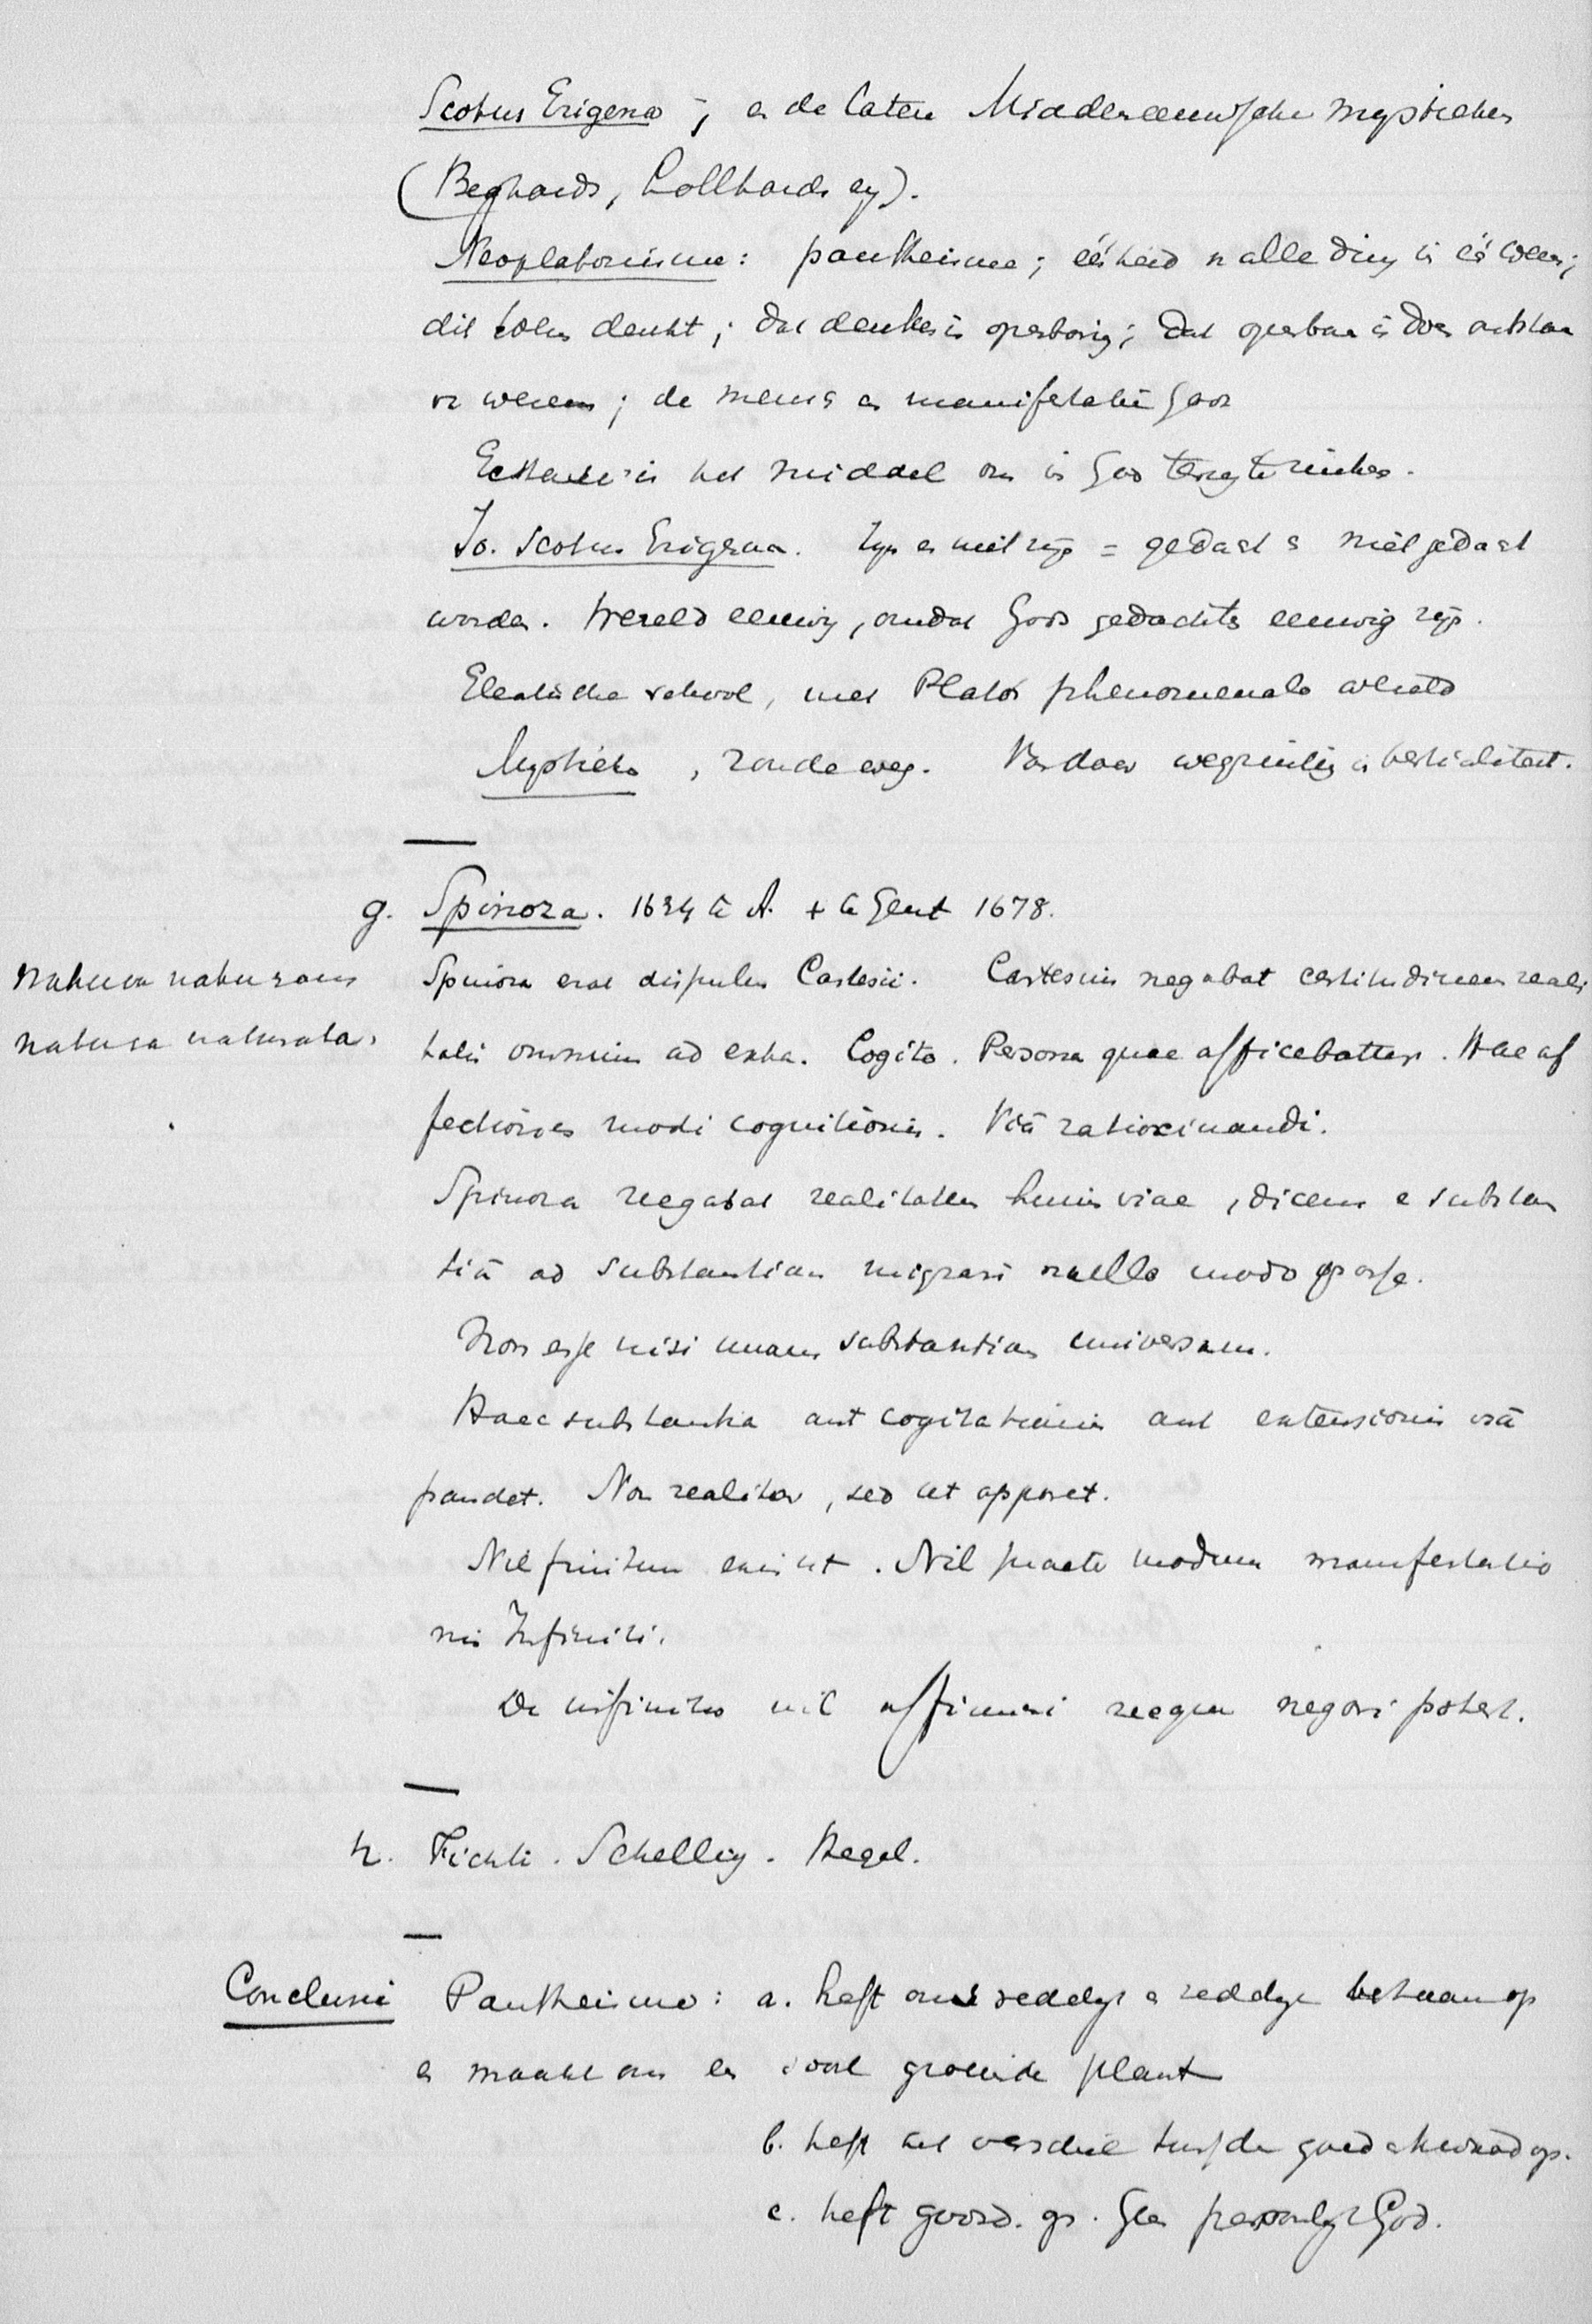 Scotus Erigena; en de latere Middeneeuwsche mystieken
(Beghards, Lollhards eg).
Neoplatonisme: pantheisme; éénheid v alle ding in één wezen;
dit wezen denkt; dat denken is openbaring; dat openbaar is doen ontstaan
v wezen; de mens en manifestatie Gods
Ecstase is het middel om in God terug te zinken.
Jo. Scotus Erigena. Zyn en niet zijn = gedacht en niet gedacht
worden. Wereld eeuwig, omdat Gods gedachten eeuwig zijn.
Eleatische school, met Plato's phenomenale wereld
Mystieke, zonde weg. Vandaar wegzinking in bestialiteit.
g. Spinoza. 1634 te A. + te Gent 1678.
natura naturans
natura naturata.
Spinoza erat discipulus Cartesii. Cartesius negabat certitudinem reali
tatis omnium ad extra. Cogito. Persona quae afficebatur. Hae af
fectiones modi cognitionis. Viâ ratiocinandi.
Spinoza negabat realitatem huius viae, dicens e substan
tiâ ad substantiam migrari nullo modo posse.
Non esse nisi unam substantiam universam.
Haec substantia aut cogitationis aut extensionis viâ
pandet. Non realiter, sed ut apparet.
Nil finitum existit. Nil praeter modum manifestatio
nis Infiniti.
De infinito nil affirmari neque negari potest.
h. Fichte. Schelling. Hegel.
Conclusie Pantheisme: a. heft ons zedelyk en redelyk bestaan op
en maakt ons een soort groeiende plant
b. heft het verschil tusschen goed en kwaad op.
c. heft godsd. op. Geen persoonlyk God.